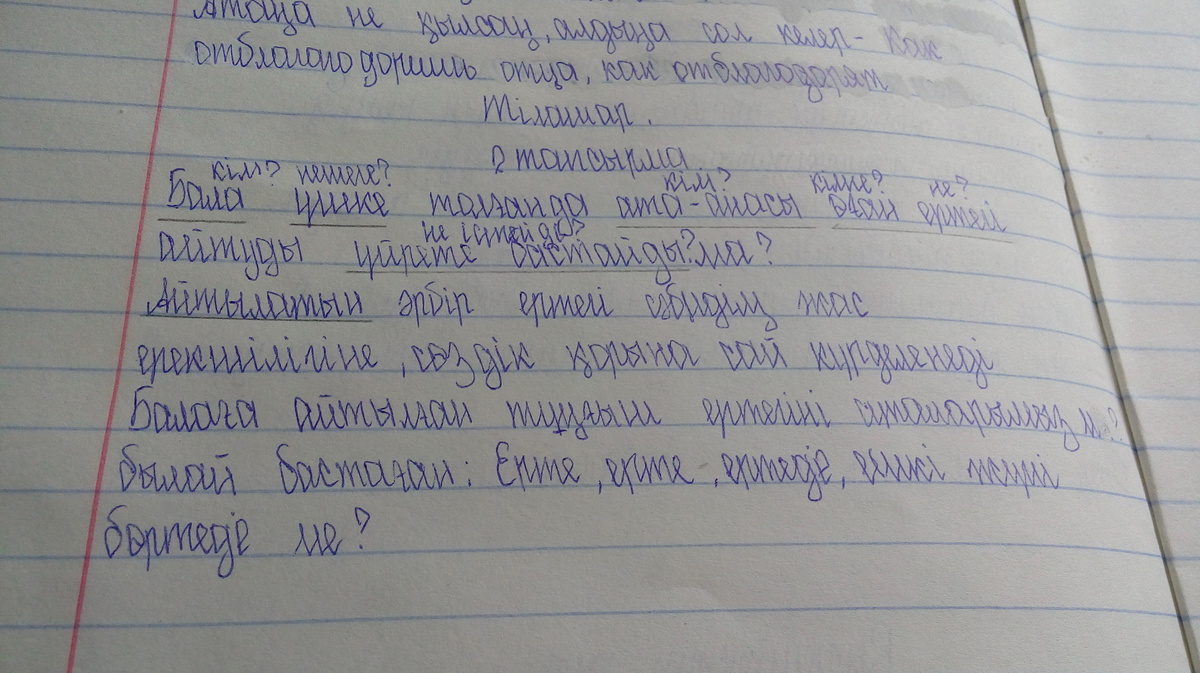 Атаңа не қылсаң, алдыңа сол келер - Как
отблагодоришь отца, как отблагодарят
Тілашар.
2 тапсырма
кім? нешеге? кім? кімге? не?
Бала үшке толғанда ата-анасы оған ертегі
не істейді?
айтуды үйрете бастайды? ма?
Айтылатын әрбір ертегі сәбидің жас
ерекшілігіне, сөздік қорына сай күрделенеді
Балаға айтылған тұңғыш ертегіні аталарымыз м?
былай бастаған: Ерте, ерте, ертеде, ешкі жүні
бөртеде ме?